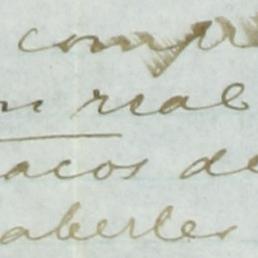 compr
n real
acos de
aberles